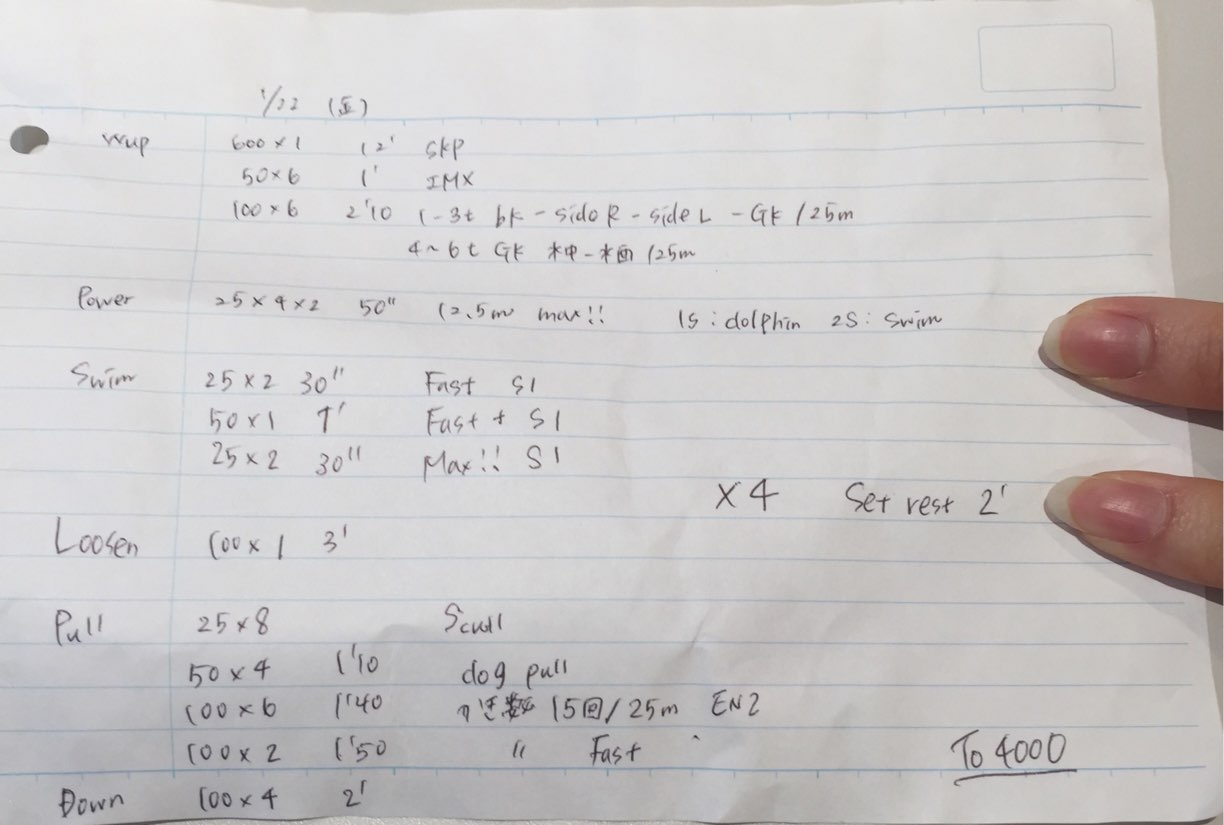 1/22 (金)
Wup 600×1 12' SKP
50×6 1' IMX
100×6 2'10 1-3t bk - side R - side L - GK /25m
4~6t GK 水中-水面 /25m
Power 25×4×2 50" 12.5m max!! 1S:dolphin 2S:swim
Swim 25×2 30" Fast S1
50×1 1' Fast+ S1
25×2 30" Max!! S1
×4 Set rest 2'
Loosen 100×1 3'
Pull 25×8 Scull
50×4 1'10 dog pull
100×6 1'40 かき数 15回/25m EN2
100×2 1'50 〃 Fast
To 4000
Down 100×4 2'